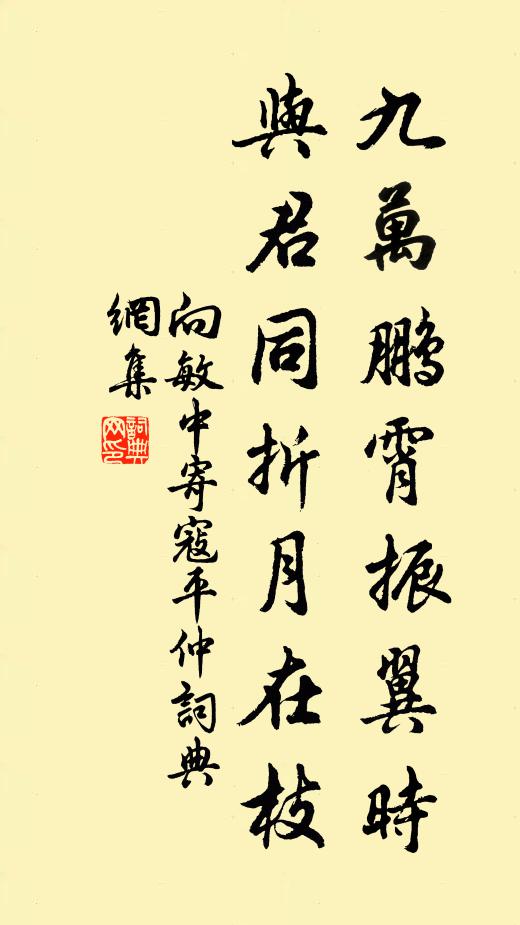 九萬鵬霄振翼時
與君同折月在枝
向敏中寄寇平仲詞典
網集
詞典
网印